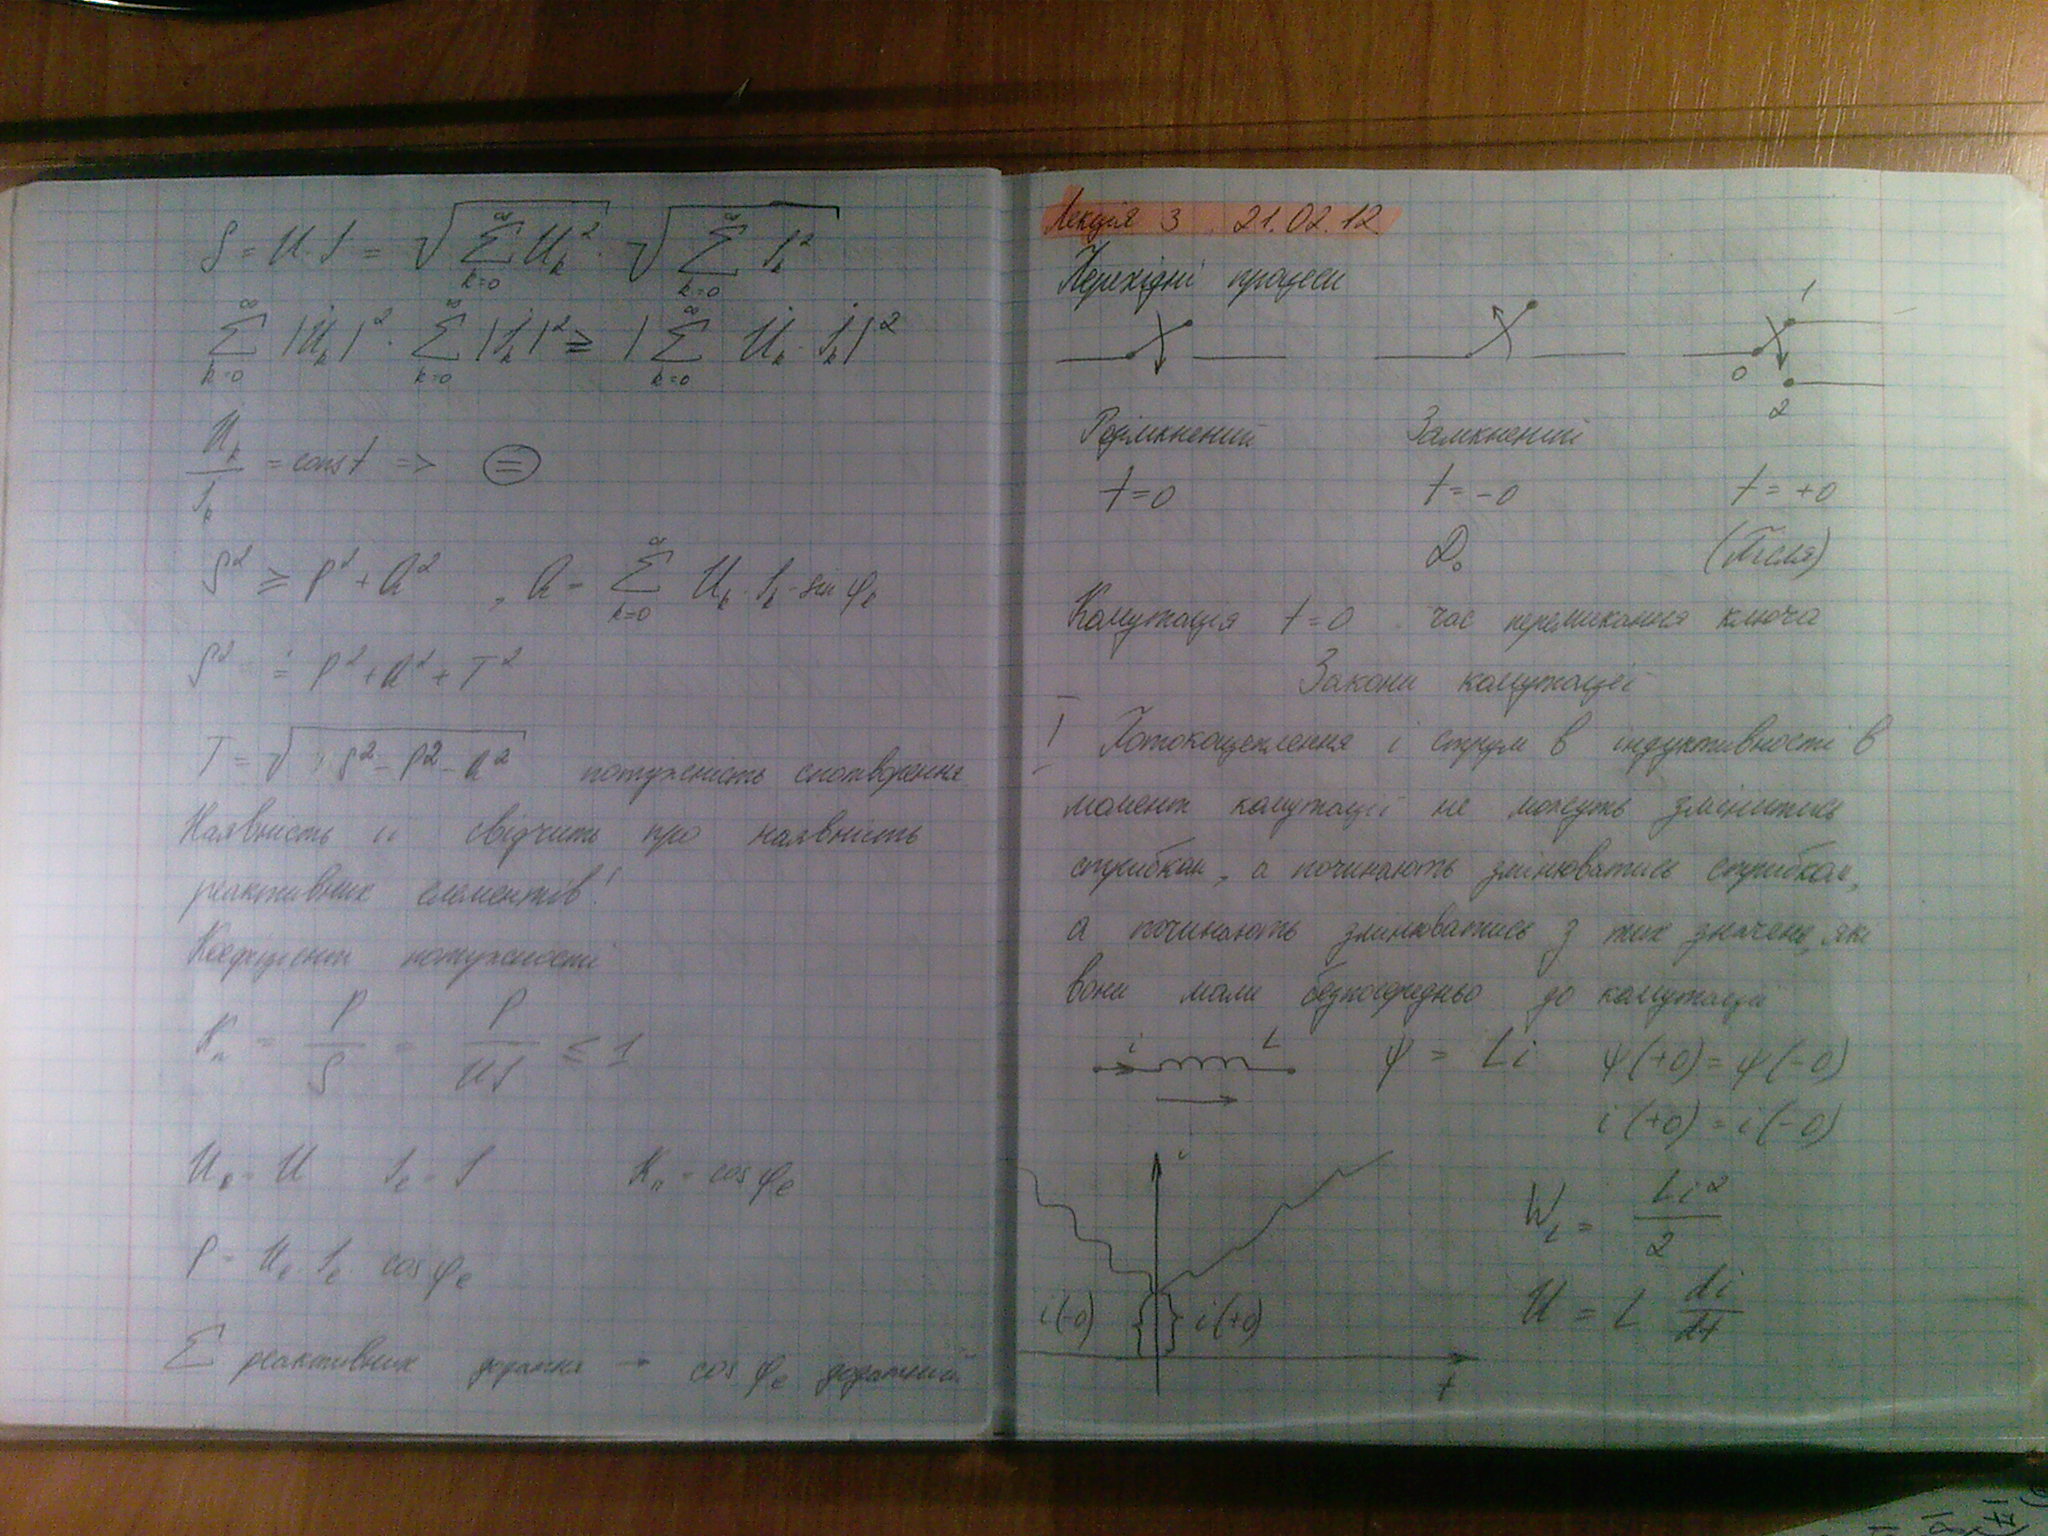 S = U·I = √(∑_{k=0}^{∞} U_k²) · √(∑_{k=0}^{∞} I_k²)
∑_{k=0}^{∞} |U̇_k|² · ∑_{k=0}^{∞} |İ_k|² ≥ |∑_{k=0}^{∞} U̇_k · İ_k|²
U_k / I_k = const => (=)
S² ≥ P² + Q² , Q = ∑_{k=0}^{∞} U_k · I_k · sin φ_k
S² = P² + Q² + T²
T = √(S² - P² - Q²) потужність спотворення
Наявність її свідчить про наявність
реактивних елементів!
Коефіцієнт потужності
K_п = P / S = P / UI ≤ 1
U_e = U I_e = I K_п = cos φ_e
P = U_e · I_e · cos φ_e
Σ реактивних додатня - cos φ_e додатний
Лекція 3 21.02.12
Перехідні процеси
1
0
2
Розімкнений Замкнений
t = 0 t = -0 t = +0
До (Після)
Комутація t = 0 час перемикання ключа
Закони комутації
I Потокозчеплення і струм в індуктивності в
момент комутації не можуть змінитись
стрибком, а починають змінюватись стрибком,
а починають змінюватись з тих значень, які
вони мали безпосередньо до комутації
i L ψ = Li ψ(+0) = ψ(-0)
i(+0) = i(-0)
i
W_L = Li² / 2
i(-0) i(+0) U = L di/dt
t